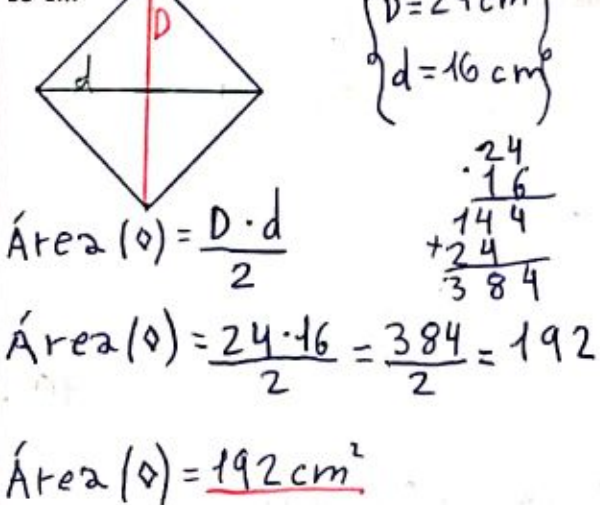 D
D = 24 cm
d
d = 16 cm
24
· 16
144
+ 24
384
Área (◊) = D · d / 2
Área (◊) = 24 · 16 / 2 = 384 / 2 = 192
Área (◊) = 192 cm²